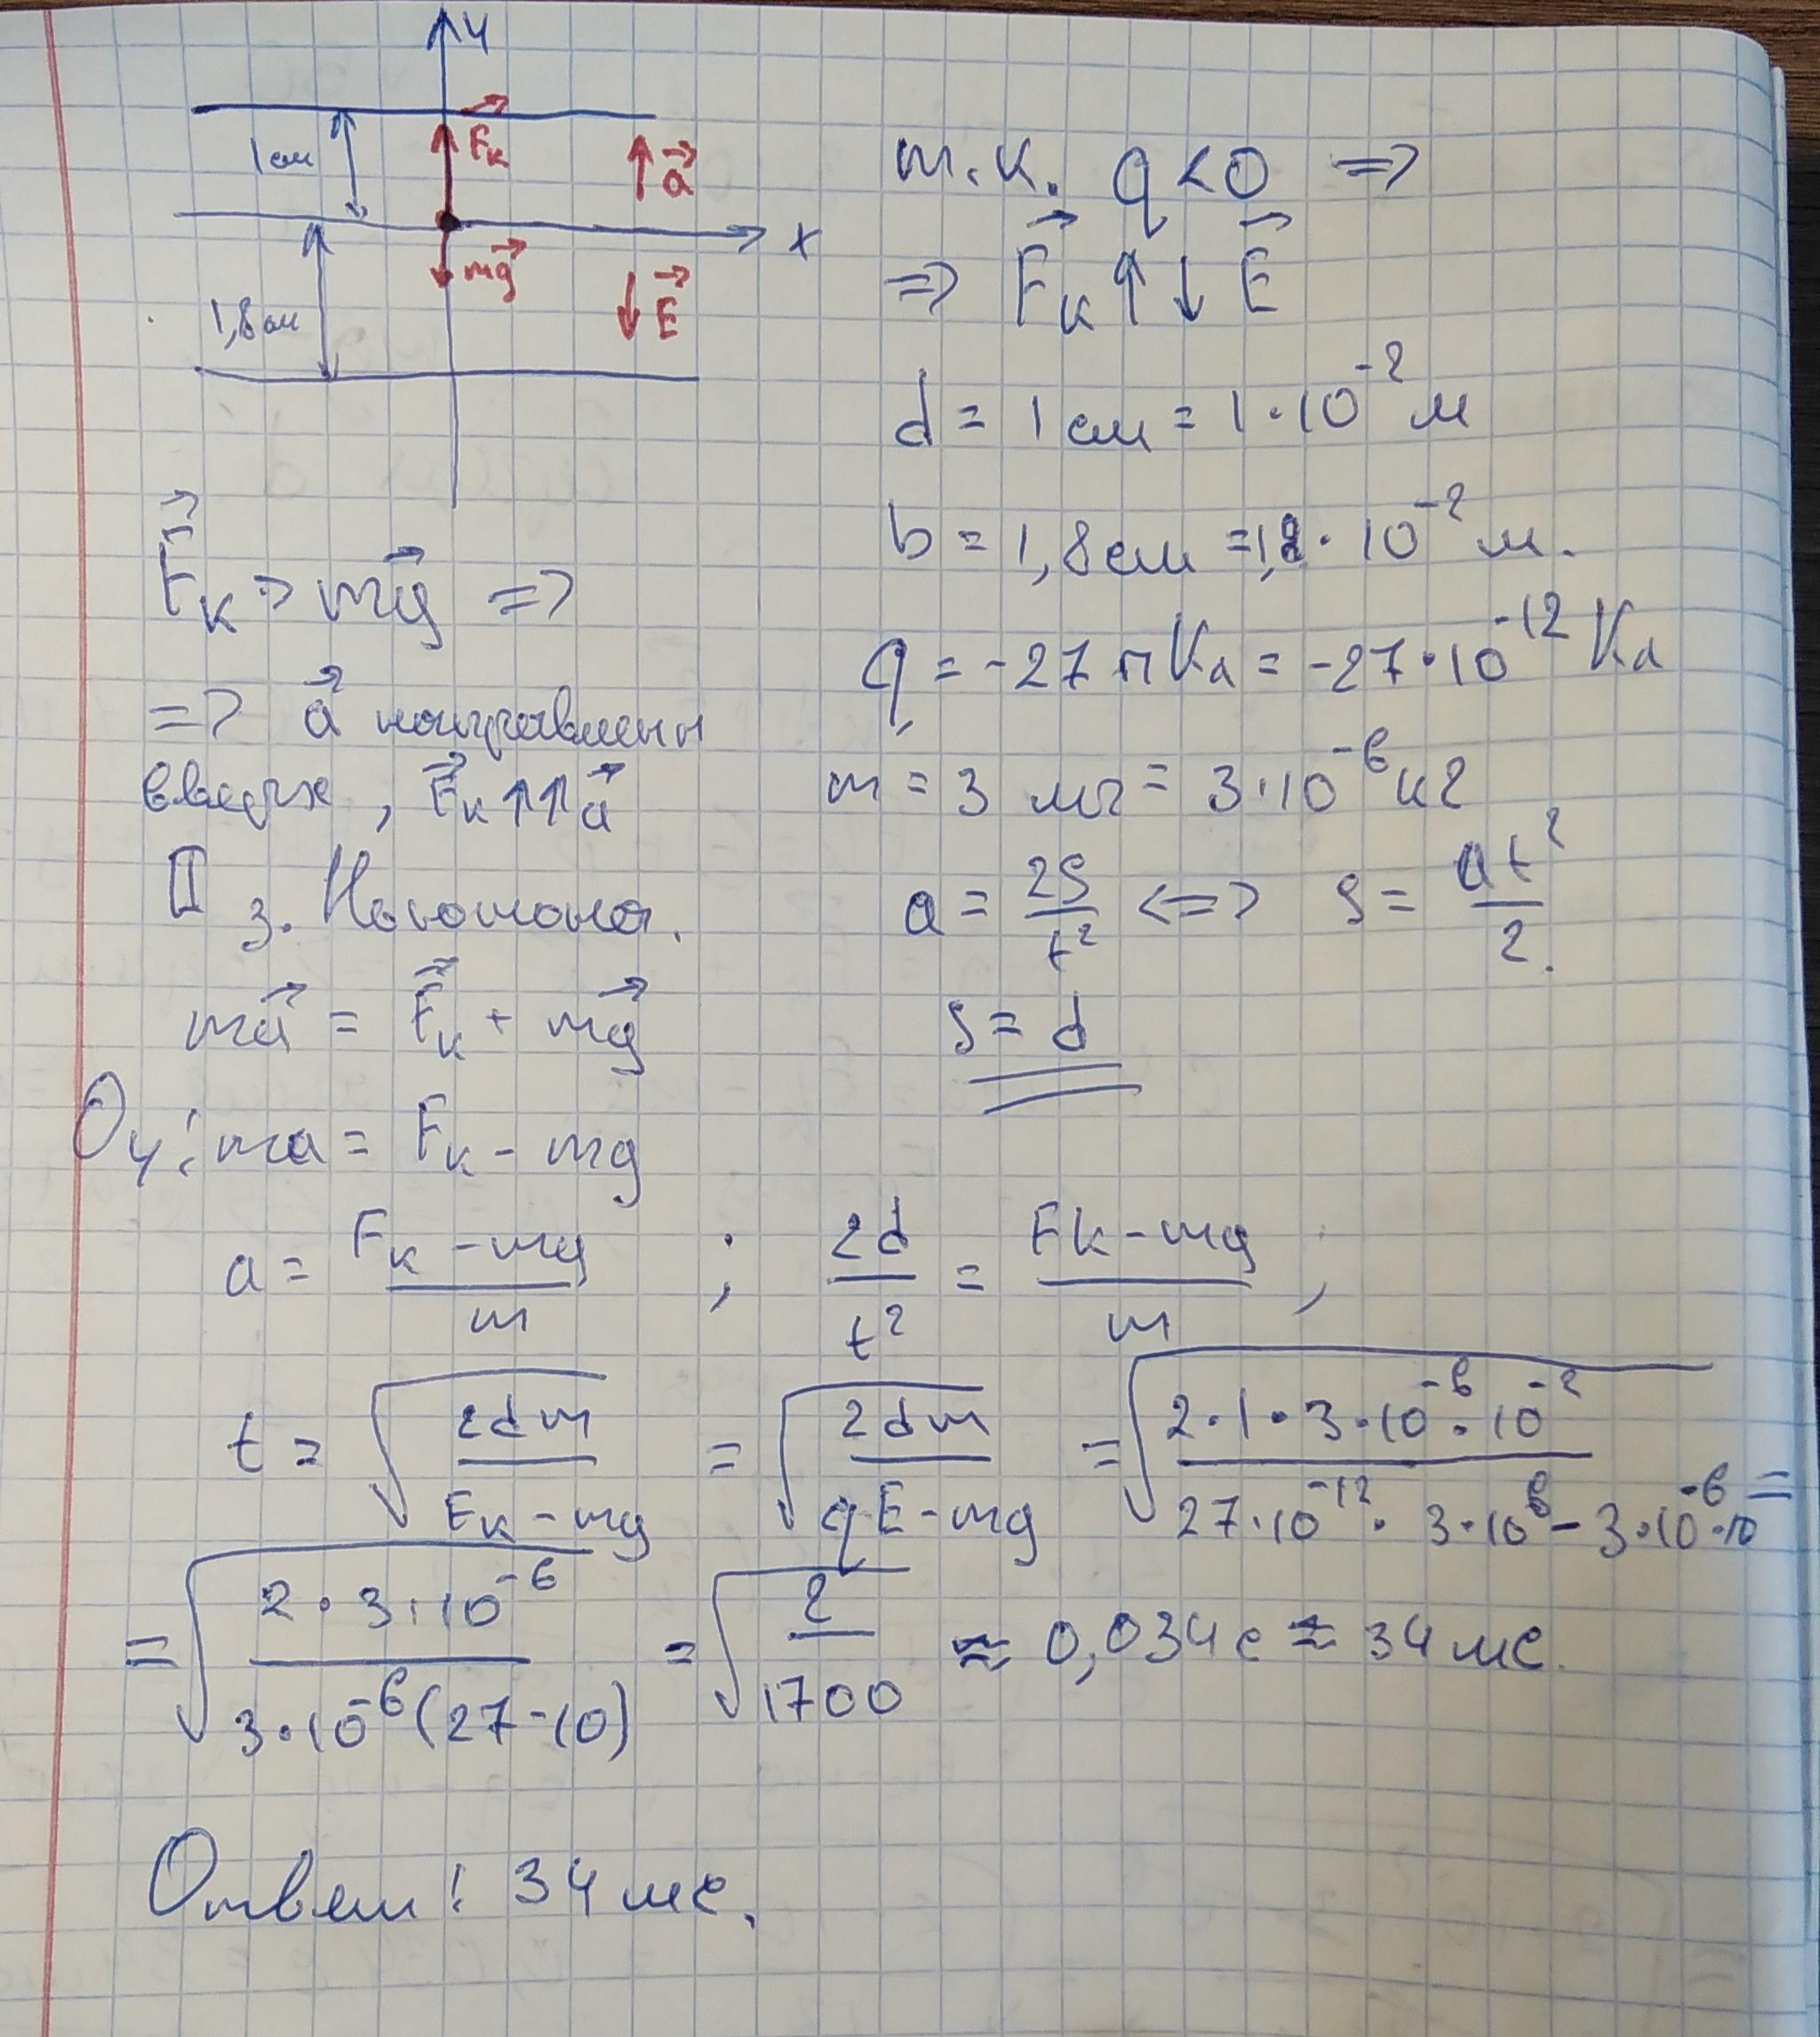 y
1см
F_к
a
x
mg
E
1,8см
т.к. q<0 =>
=> F_к ↑↓ E
d = 1см = 1·10^-2 м
b = 1,8см = 1,8·10^-2 м.
q = -27 пКл = -27·10^-12 Кл
m = 3 мг = 3·10^-6 кг
a = 2S/t^2 <=> S = at^2/2.
S = d
F_к > mg =>
=> a направлен
вверх, F_к ↑↑ a
II з. Ньютона.
ma = F_к + mg
Oy: ma = F_к - mg
a = (F_к - mg)/m ; 2d/t^2 = (Fк - mg)/m ;
t = √(2dm/(F_к - mg)) = √(2dm/(qE - mg)) = √((2·1·3·10^-6·10^-2)/(27·10^-12·3·10^6 - 3·10^-6·10)) =
= √((2·3·10^-6)/(3·10^-6(27-10))) = √(2/1700) ≈ 0,034с ≈ 34мс.
Ответ: 34 мс.